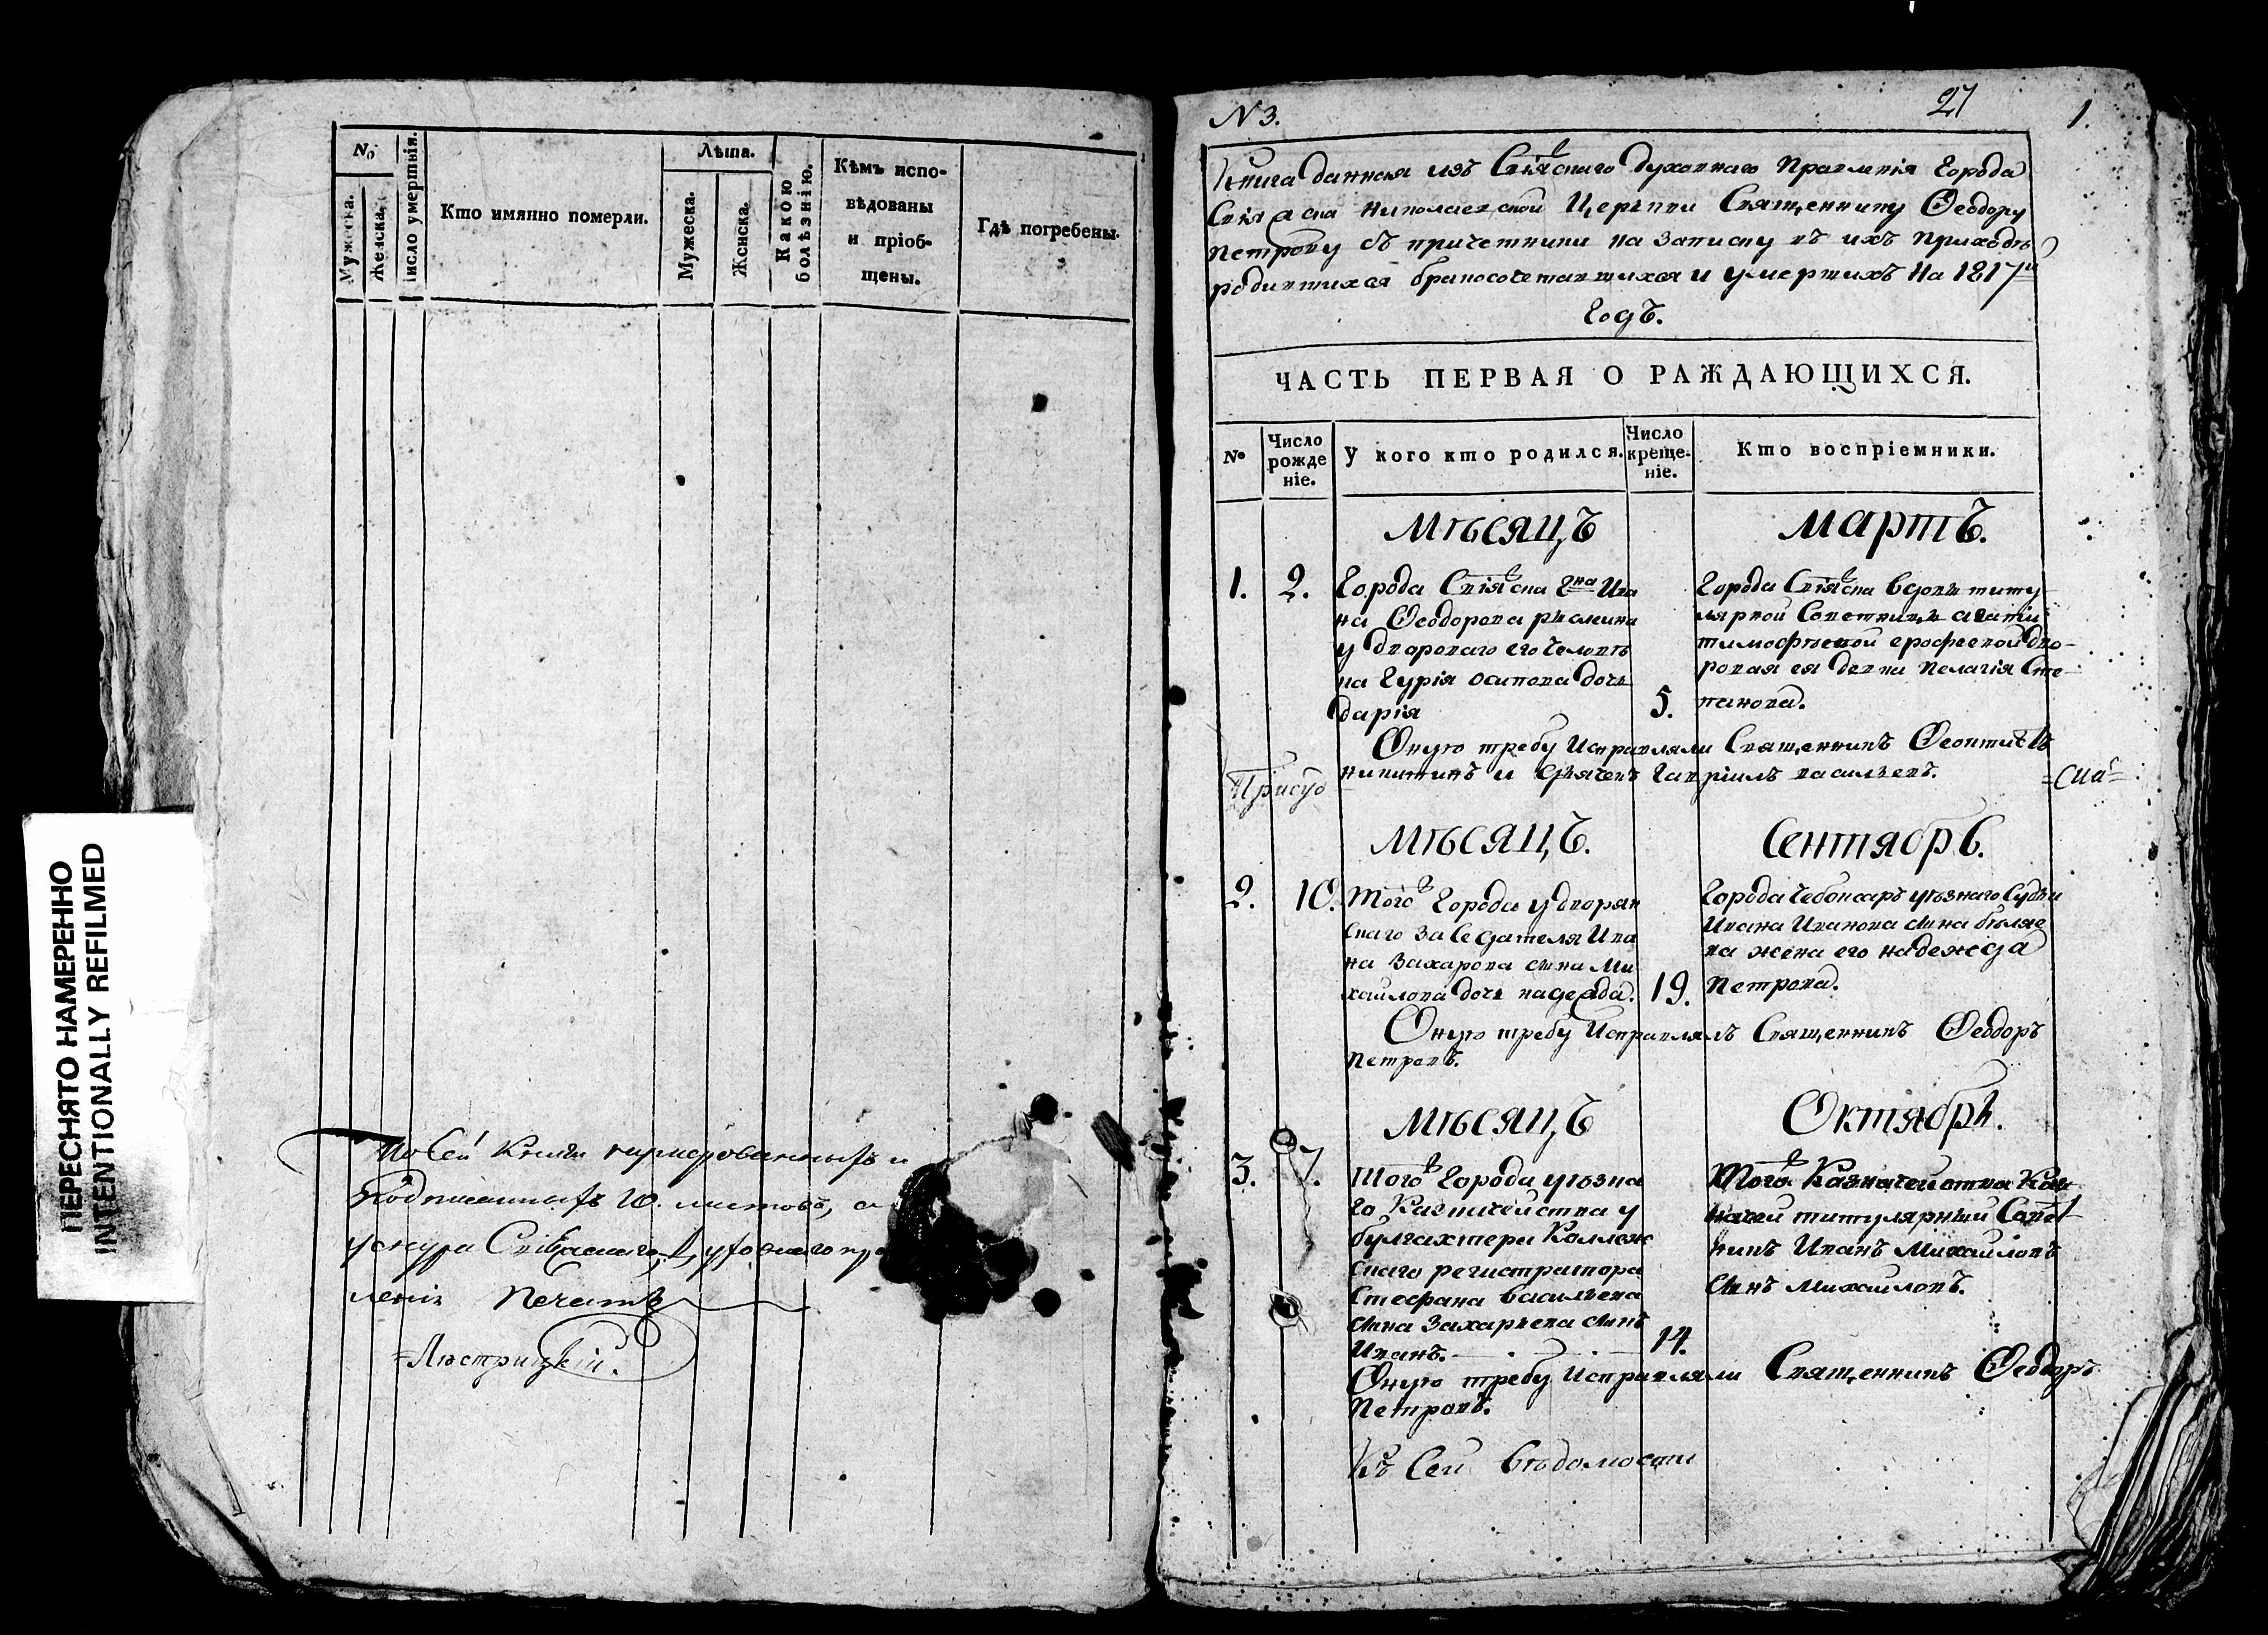 ПЕРЕСНЯТО НАМЕРЕННО
INTENTIONALLY REFILMED
№
Мужеска.
Женска.
Число умертвія.
Кто имянно померли.
Лѣта.
Мужеска.
Женска.
Какою болѣзнію.
Кѣмъ испо-
вѣдованы
и пріоб-
щены.
Гдѣ погребены.
Книги
листовъ,
Печать
N 3.
27
1.
Книга данная изъ Свіяскаго Духовнаго Правленія Города
Свіяска Николаевской Церкви Священнику Ѳеодору
Петрову съ причетники на Записку въ ихъ приходѣ
родившихся бракосочетавшихся и умершихъ На 1817й
Годъ.
ЧАСТЬ ПЕРВАЯ О РАЖДАЮЩИХСЯ.
№
Число
рожде
ніе.
У кого кто родился.
Число
креще-
ніе.
Кто воспріемники.
Мѣсяцъ
Мартъ.
1. 2. Города Свіяска Гна Ива
на Ѳеодорова
у двороваго его человѣ
ка Гурія Осипова дочь
дарія
5.
Города Свіяска вдовы титу
лярной Советницы агатіи
тимофѣевой ерофеевой дво-
ровая ея девка Пелагія Сте-
панова.
Оную требу Исправляли Священникъ Леонтій
никитинъ и Гавріилъ васильевъ.
Мѣсяцъ.
Сентябрь.
2. 10. Того Города у дворян
скаго Заседателя Ива
на Захарова сына Ми
хаилова дочь надежда.
19.
Города Чебоксаръ уѣзнаго Судьи
Ивана Иванова сына бѣляе
ва жена его надежда
Петрова.
Оную требу Исправлялъ Священникъ Ѳеодоръ
Петровъ.
Мѣсяцъ
Октябрь.
3. 7. Того Города уѣзна
го Казначейства у
булгахтера Коллеж
скаго регистратора
Стефана Васильева
сына Захарьева сынъ
Иванъ.
14.
Того Казначейства Каз-
начей титулярный Совет
никъ Иванъ Михаиловъ
сынъ Михаиловъ.
Оную требу Исправляли Священникъ Ѳеодоръ
Петровъ.
Къ Сей Вѣдомости